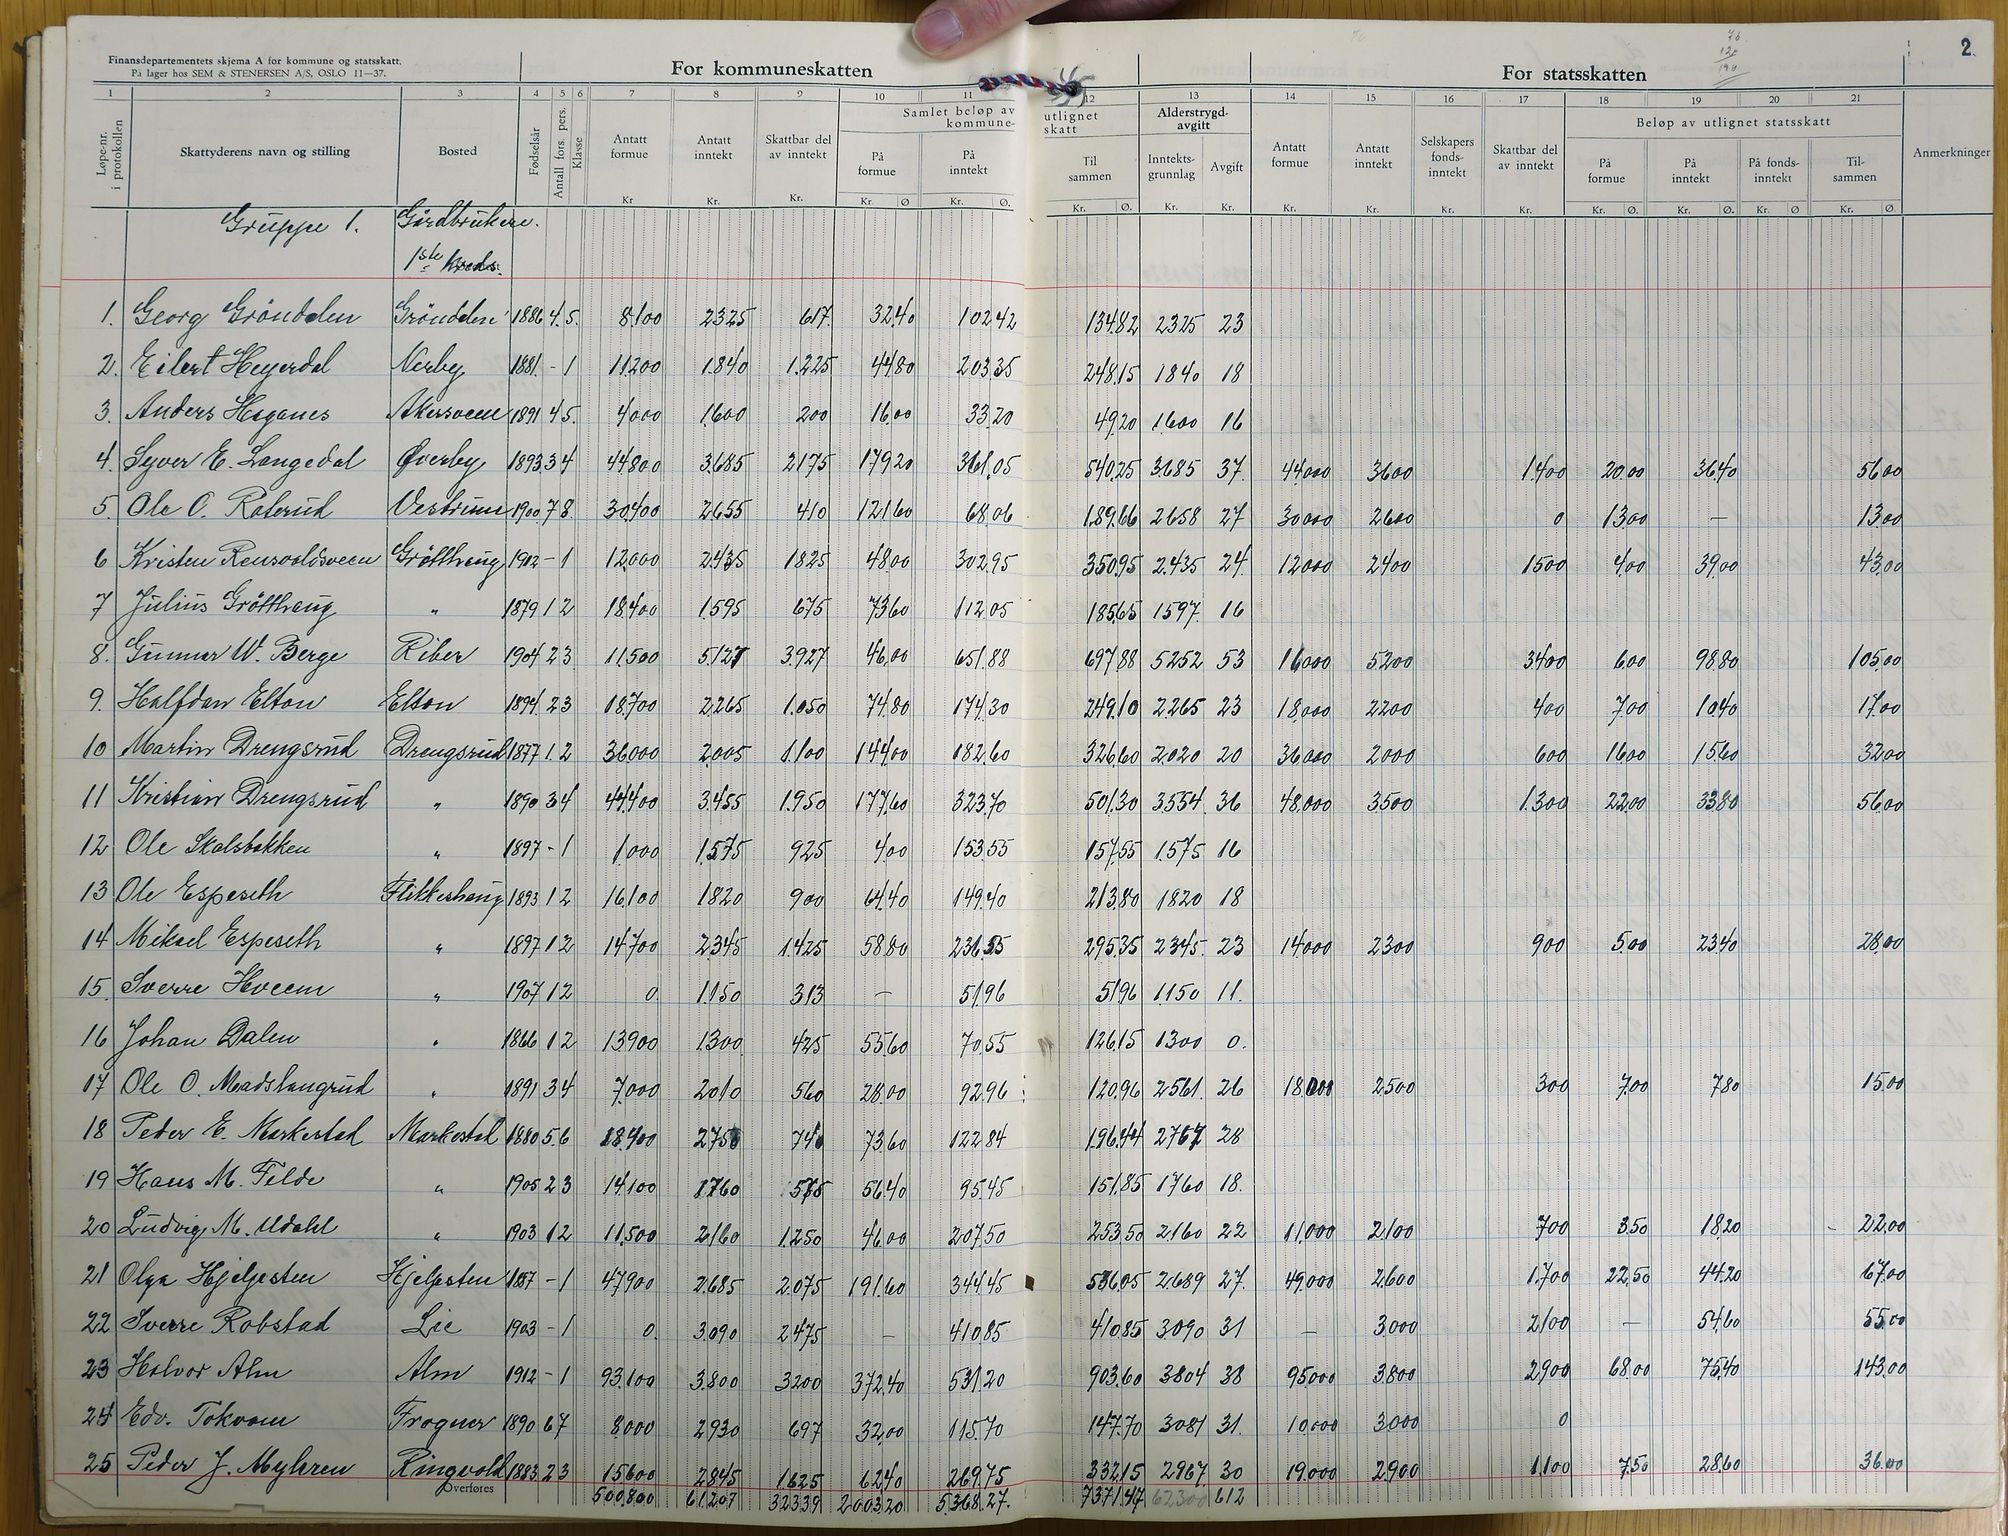 Finansdepartementets skjema A for kommune og statsskatt.
På lager hos SEM & STENERSEN A/S, OSLO 11—37.
For kommuneskatten
For statsskatten
2
1 2 3 4 5 6 7 8 9 10 11 12 13 14 15 16 17 18 19 20 21
Løpe-nr. i protokollen Skattyderens navn og stilling Bosted Fødselsår Antall fors. pers. Klasse Antatt formue Antatt inntekt Skattbar del av inntekt Samlet beløp av utlignet kommune-skatt På formue På inntekt Til sammen Alderstrygd-avgift Inntekts-grunnlag Avgift Antatt formue Antatt inntekt Selskapers fonds-inntekt Skattbar del av inntekt Beløp av utlignet statsskatt På formue På inntekt På fonds-inntekt Til-sammen Anmerkninger
Kr Kr. Kr. Kr. Ø Kr. Ø. Kr. Ø. Kr. Kr. Kr. Kr. Kr. Kr. Ø. Kr. Ø. Kr. Ø Kr. Ø.
Gruppe 1. Gårdbrukere.
1ste kreds.
1. Georg Gröndalen Gröndalen 1886 4. 5. 8.100 2325 617. 32.40 102 42 134.82 2325 23
2. Eilert Heyerdal Nerby 1881. - 1 11.200 1.840 1.225 44.80 203.35 248.15 1840 18
3. Anders Haganes Akersveen 1891 4 5. 4000 1.600 200 16.00 33.20 49.20 1.600 16
4. Syver E. Langedal Øverby 1893 3 4 44.800 3.685 2175 179.20 361.05 540.25 3.685 37. 44.000 3600 1.400 20.00 36.40 56.00
5. Ole O. Raterud Vestrum 1900 7 8. 30.400 2.655 410 121.60 68.06 189.66 2658 27 30.000 2600 0 13.00 — 13.00
6 Kristen Rensvoldsveen Grötthaug 1902 - 1 12.000 2.435 1825 48.00 302.95 350.95 2.435 24. 12000 2400 1500 4.00 39.00 43.00
7 Julius Grötthaug " 1879 1 2 18.400 1.595 675 73.60 112.05 185.65 1597. 16
8. Gunnar W. Berge Riber 1904 2 3. 11.500 5.127 3.927 46.00 651.88 697.88 5252 53 16000 5200 3400 6.00 98.80 105.00
9. Halfdan Elton Elton 1894. 2 3 18.700 2.265 1.050 74.80 174.30 249.10 2265 23 18.000 2200 400 7.00 10.40 17.00
10 Martin Drengsrud Drengsrud 1877 1. 2 36.000 2.005 1.100 144.00 182.60 326.60 2.020 20 36.000 2000 600 16.00 15.60 32.00
11 Kristian Drengsrud " 1890 3 4 44.400 3.455 1.950 177.60 323.70 501.30 3554. 36 48.000 3500 1.300 22.00 33.80 56.00
12 Ole Skalsbakken " 1897 - 1 1.000 1.575 925 4.00 153.55 157.55 1.575 16
13 Ole Espeseth Flikkeshaug 1893 1 2 16.100 1820 900 64.40 149.40 213.80 1820 18
14 Mikael Espeseth " 1897 1 2 14.700 2.345 1.425 58.80 236.55 295.35 2345. 23 14.000 2300 900 5.00 23.40 28.00
15. Sverre Hveem " 1907 1 2 0. 1.150 313 — 51.96 51.96 1.150 11.
16 Johan Dalen " 1866 1 2 13.900 1.300 425 55.60 70.55 126.15 1300 0.
17 Ole O. Madslangrud " 1891 3 4 7.000 2010 560 28.00 92.96 120.96 2561. 26 18.000 2500 300 7.00 7.80 15.00
18 Peder E. Markestad Markestad 1880 5. 6 18.400 2750 740 73.60 122.84 196.44 2767 28
19 Hans M. Felde " 1905 2 3 14.100 1760 575 56.40 95.45 151.85 1760 18.
20 Ludvig M. Udahl " 1903 1 2 11.500 2160 1.250 46.00 207.50 253.50 2160 22 11.000 2.100 700 3.50 18.20 22.00
21 Olga Hjelpesten Hjelpesten 1887 - 1 47.900 2.685 2.075 191.60 344.45 536.05 2.689 27. 49.000 2.600 1.700 22.50 44.20 67.00
22 Sverre Robstad Lie 1903 - 1 0. 3.090 2475 — 410.85 410.85 3090 31 — 3000 2100 — 54.60 55.00
23 Halvor Alm Alm 1912 - 1 93.100 3.800 3200 372.40 531.20 903.60 3804 38 95.000 3.800 2.900 68.00 75.40 143.00
24 Edv. Tokvam Frogner 1890 6 7 8.000 2930 697 32.00 115.70 147.70 3081 31. 10.000 3000 0
25 Peder J. Myhren Ringvold 1883 2 3 15.600 2845 1.625 62.40 269.75 332.15 2967. 30 19.000 2900 1.100 7.50 28.60 36.00
Overføres 500.800 61.207 32339 2003.20 5.368.27. 7371.47 62300 612